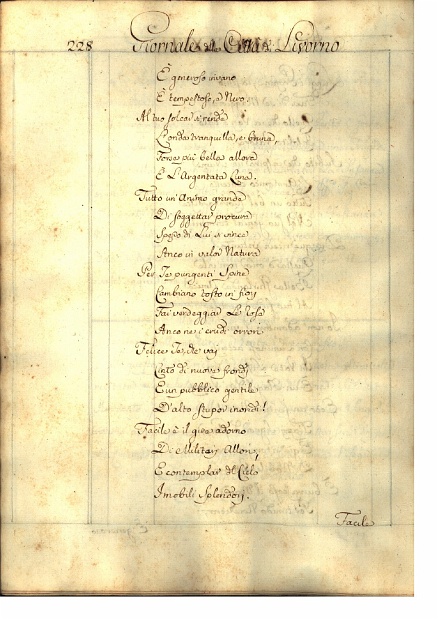 228 Giornale della Città di Livorno
È generoso in vano
È tempestoso, e Nero,
Al tuo solcar si rende
L'onda tranquilla, e bruna,
Forse più bella allora
È L'Argentata Luna.
Tutto un'Animo grande
Di soggettar procura
Spesso di Lui si vince
Anco in valor Natura
Per Te pungenti Spine
Cambiano tosto in fiori
Fai verdeggiar Le Rose
Anco ne i crudi orrori
Felice Te, che vai
Cinto di nuove frondi
E un pubblico gentile
D'alto stupor inondi!
Facile è il gire adorno
Di Militari Allori,
E contemplar del Cielo
Imobili Splendori.
Facile